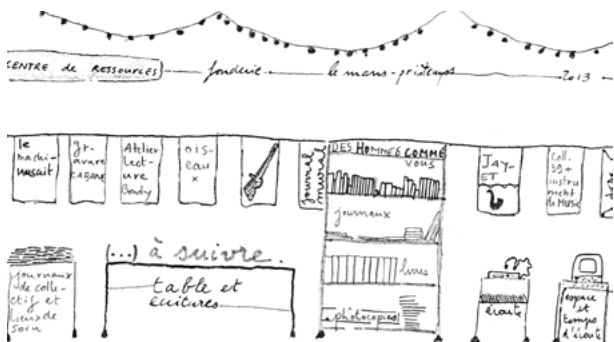 CENTRE de RESSOURCES fonderie le mans - printemps 2013
le
machi-
nusait
gr-
avure
CAGANE
Atelier
lect-
ure
Bondy
ois-
eau
x
journal
mural
DES HOMMES COMME
VOUS
journaux
livres
photocopies
JAY-
ET
Coll.
39+
instru
ment
de Music
(...) à suivre.
table et
écritures
journaux
de colle-
ctif et
lieux de
soin
écoute
espace
et
temps
d'écoute